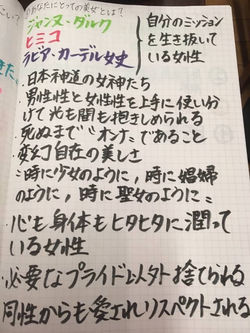 あなたにとっての美女とは?
ジャンヌ・ダルク
ヒミコ
ラビア・カーデル女史
自分のミッション
を生き抜いて
いる女性
・日本神道の女神たち
・男性性と女性性を上手に使い分
けて光も闇も抱きしめられる
・死ぬまで“オンナ”であること
・変幻自在の美しさ
=時に少女のように、時に娼婦
のように、時に聖女のように=
・心も身体もヒタヒタに潤って
いる女性
・必要なプライド以外捨てられる
同性からも愛されリスペクトされる